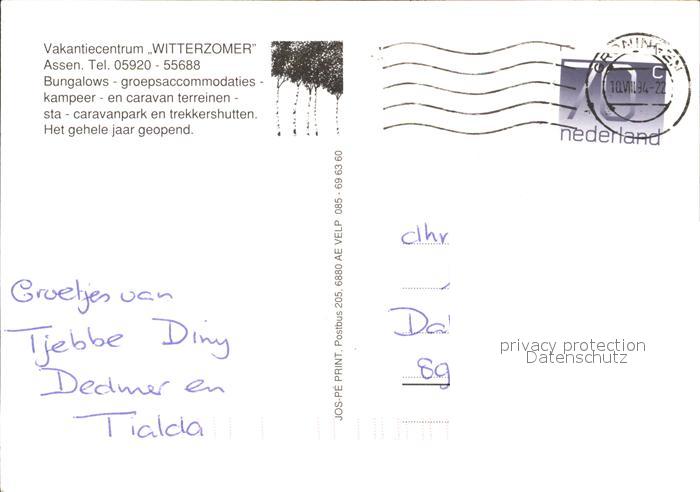 Vakantiecentrum „WITTERZOMER”
Assen. Tel. 05920 - 55688
Bungalows - groepsaccommodaties -
kampeer - en caravan terreinen -
sta - caravanpark en trekkershutten.
Het gehele jaar geopend.
GRONINGEN
10.VIII.94-22
70 c
nederland
JOS-PÉ PRINT. Postbus 205, 6880 AE VELP 085 - 69 63 60
dhr
Da
89
privacy protection
Datenschutz
Groetjes van
Tjebbe Diny
Dedmer en
Tialda